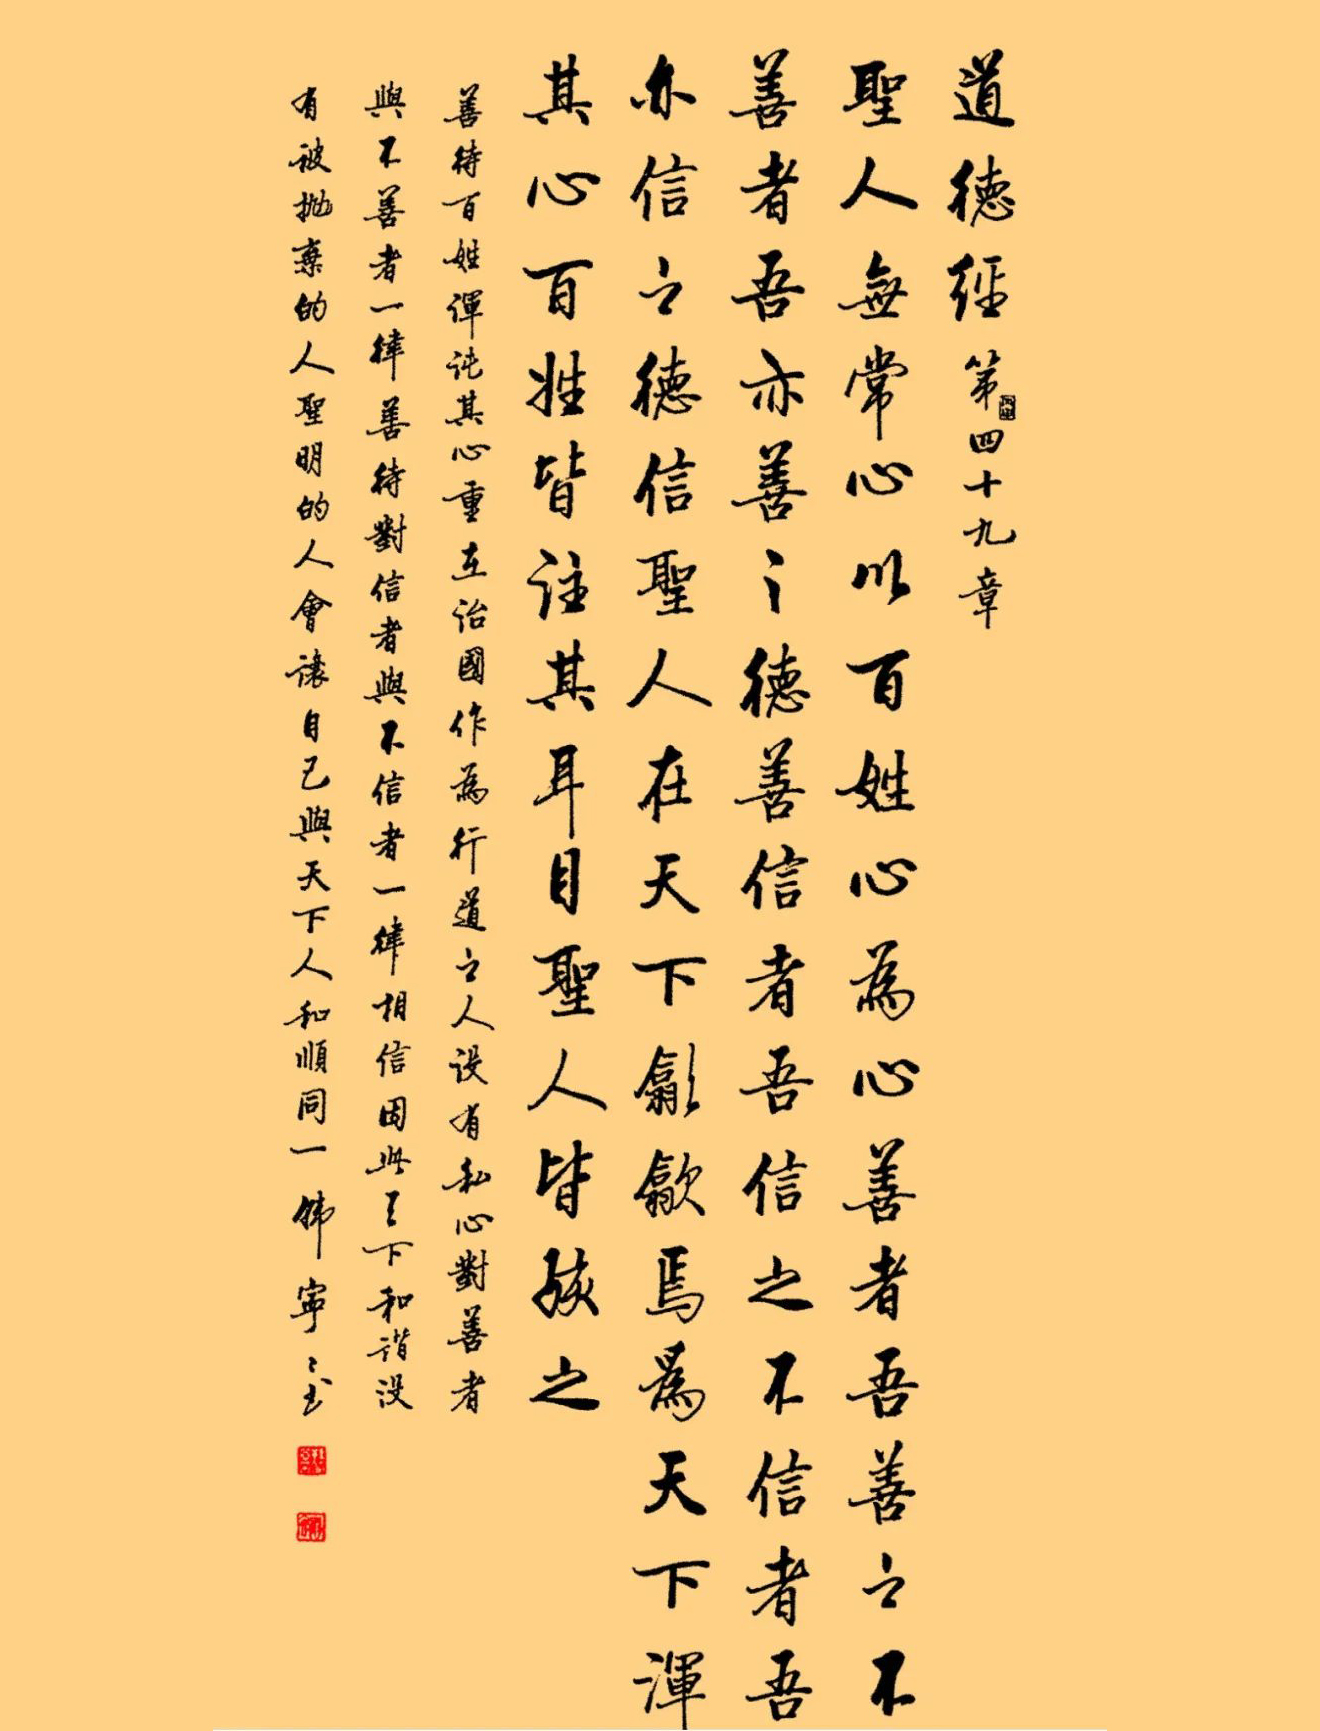 道德經第四十九章
聖人無常心以百姓心為心善者吾善之不
善者吾亦善之德善信者吾信之不信者吾
亦信之德信聖人在天下歙歙焉爲天下渾
其心百姓皆註其耳目聖人皆孩之
善待百姓渾沌其心重在治國作為行道之人没有私心對善者
與不善者一律善待對信者與不信者一律相信因此天下和諧没
有被拋棄的人聖明的人會讓自己與天下人和順同一韩寧寧书